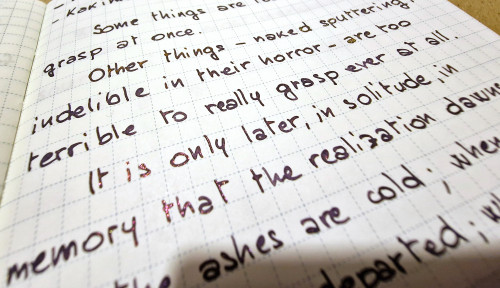 - Kakin
Some things are to
grasp at once.
Other things - naked sputtering,
indelible in their horror - are too
terrible to really grasp ever at all.
It is only later, in solitude, in
memory that the realization dawns
the ashes are cold; when
departed;